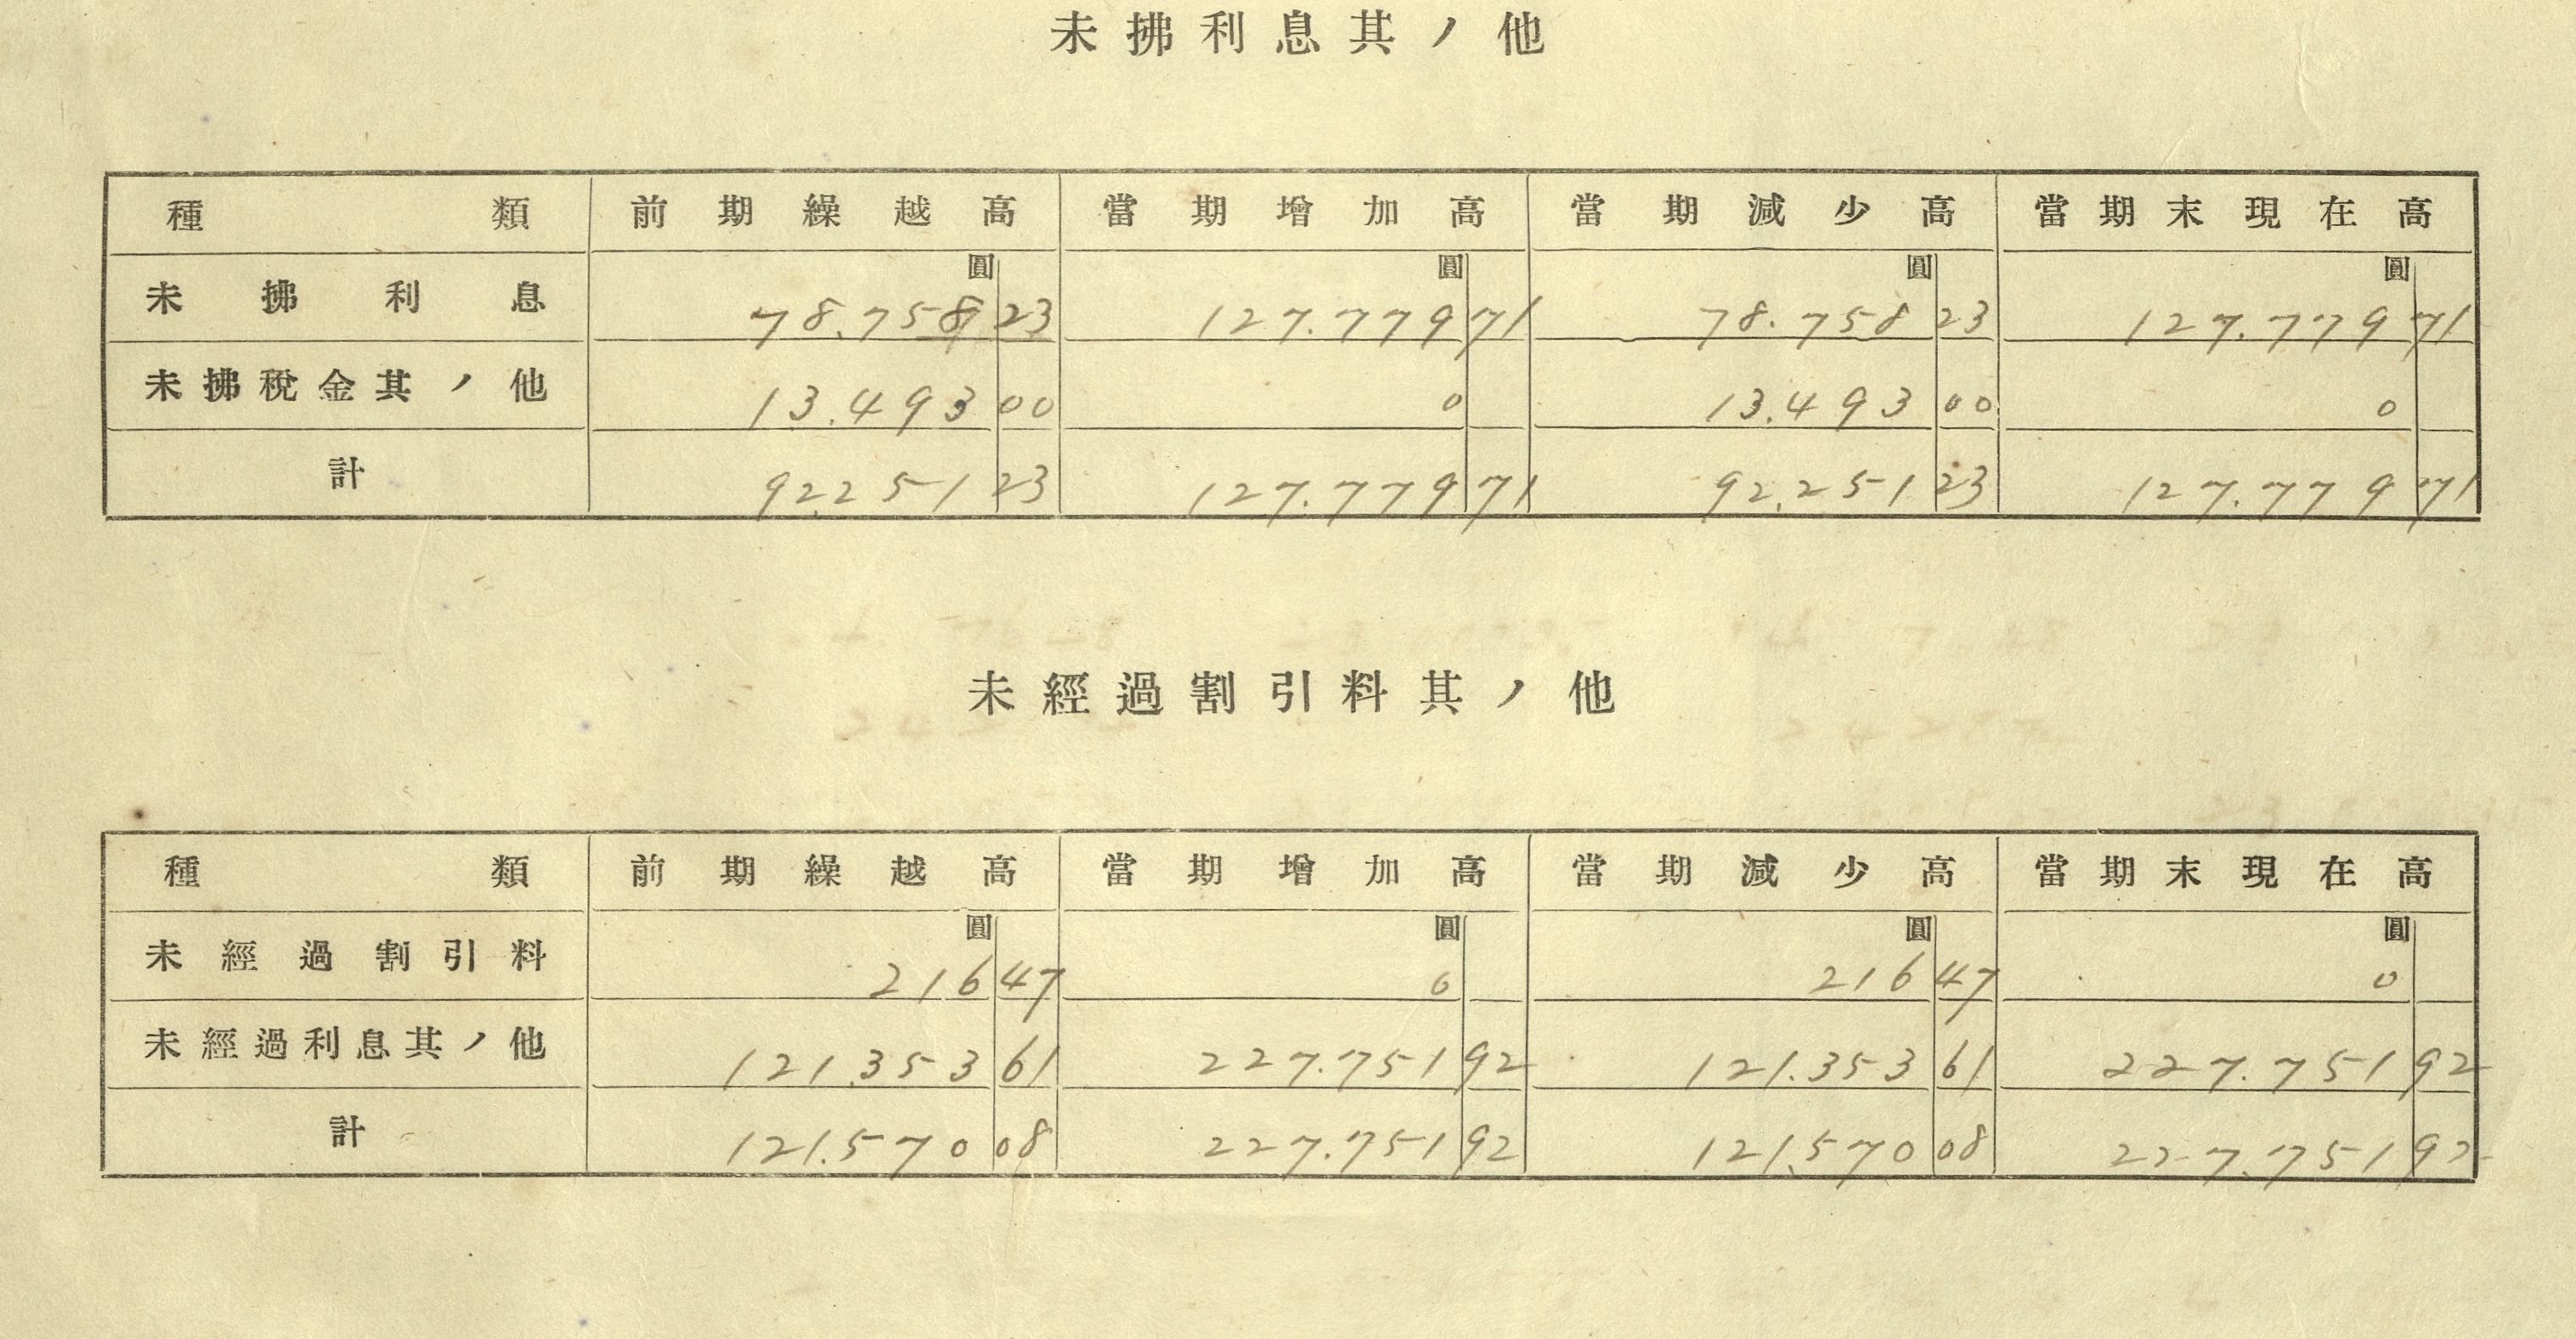 未拂利息其ノ他
種類 前期繰越高 當期增加高 當期減少高 當期末現在高
圓 圓 圓 圓
未拂利息 78.758 23 127.779 71 78.758 23 127.779 71
未拂稅金其ノ他 13.493 00 0 13.493 00 0
計 92.251 23 127.779 71 92.251 23 127.779 71
未經過割引料其ノ他
種類 前期繰越高 當期增加高 當期減少高 當期末現在高
圓 圓 圓 圓
未經過割引料 216 47 0 216 47 0
未經過利息其ノ他 121.353 61 227.751 92 121.353 61 227.751 92
計 121.570 08 227.751 92 121.570 08 227.751 92